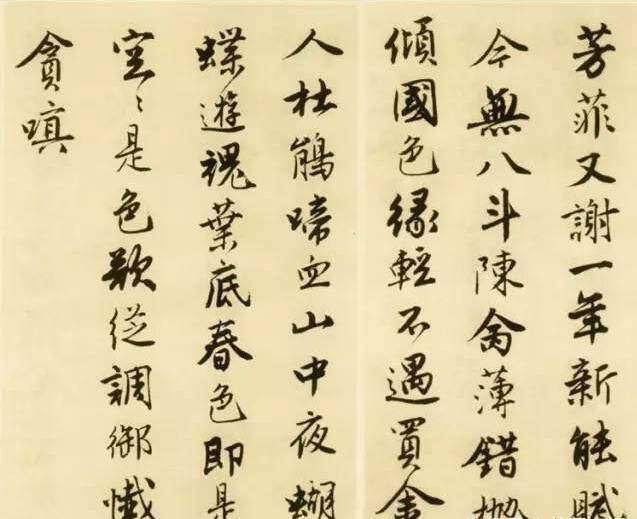 芳菲又謝一年新能賦
今無八斗陳禽薄錯拋
傾國色緣輕不遇買金
人杜鵑啼血山中夜蝴
蝶遊魂葉底春色即是
空〻是色欲從調御懺
貪嗔